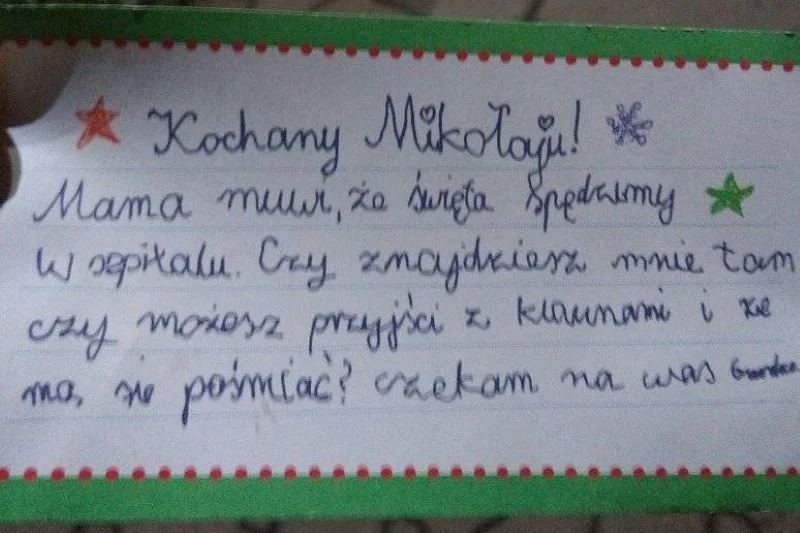 Kochany Mikołaju!
Mama muwi, że święta spędzimy
w szpitalu. Czy znajdziesz mnie tam
czy możesz przyjści z klaunami i ze
mną się pośmiać? czekam na was